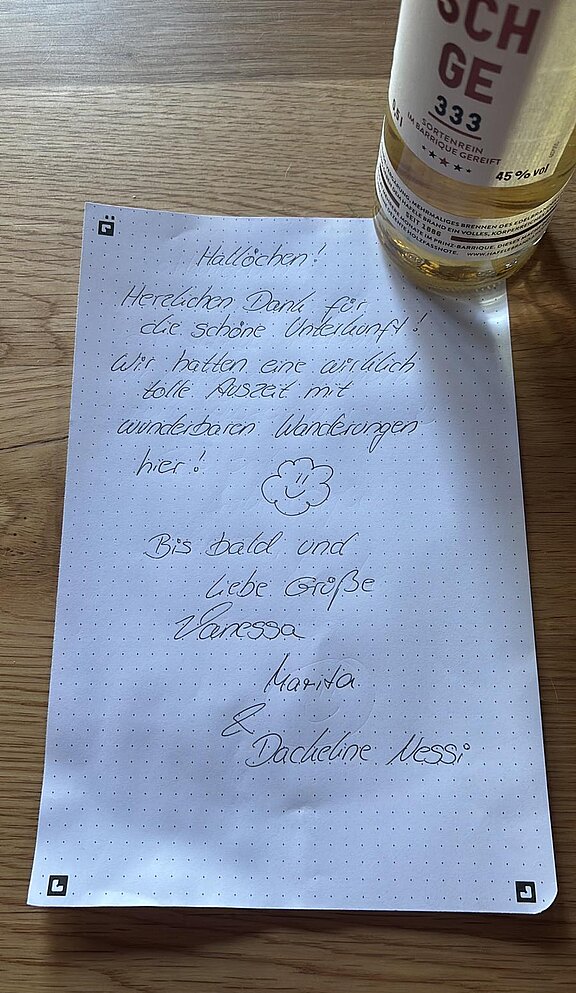 SCH
GE
333
SORTENREIN
IM BARRIQUE GEREIFT
0,5 l
45 % vol
MEHRMALIGES BRENNEN DES EDELBRANDS
SEIT 1886
Hallöchen!
Herzlichen Dank für
die schöne Unterkunft!
Wir hatten eine wirklich
tolle Auszeit mit
wunderbaren Wanderungen
hier!
Bis bald und
liebe Grüße
Vanessa
Marita
&
Dackeline Nessi